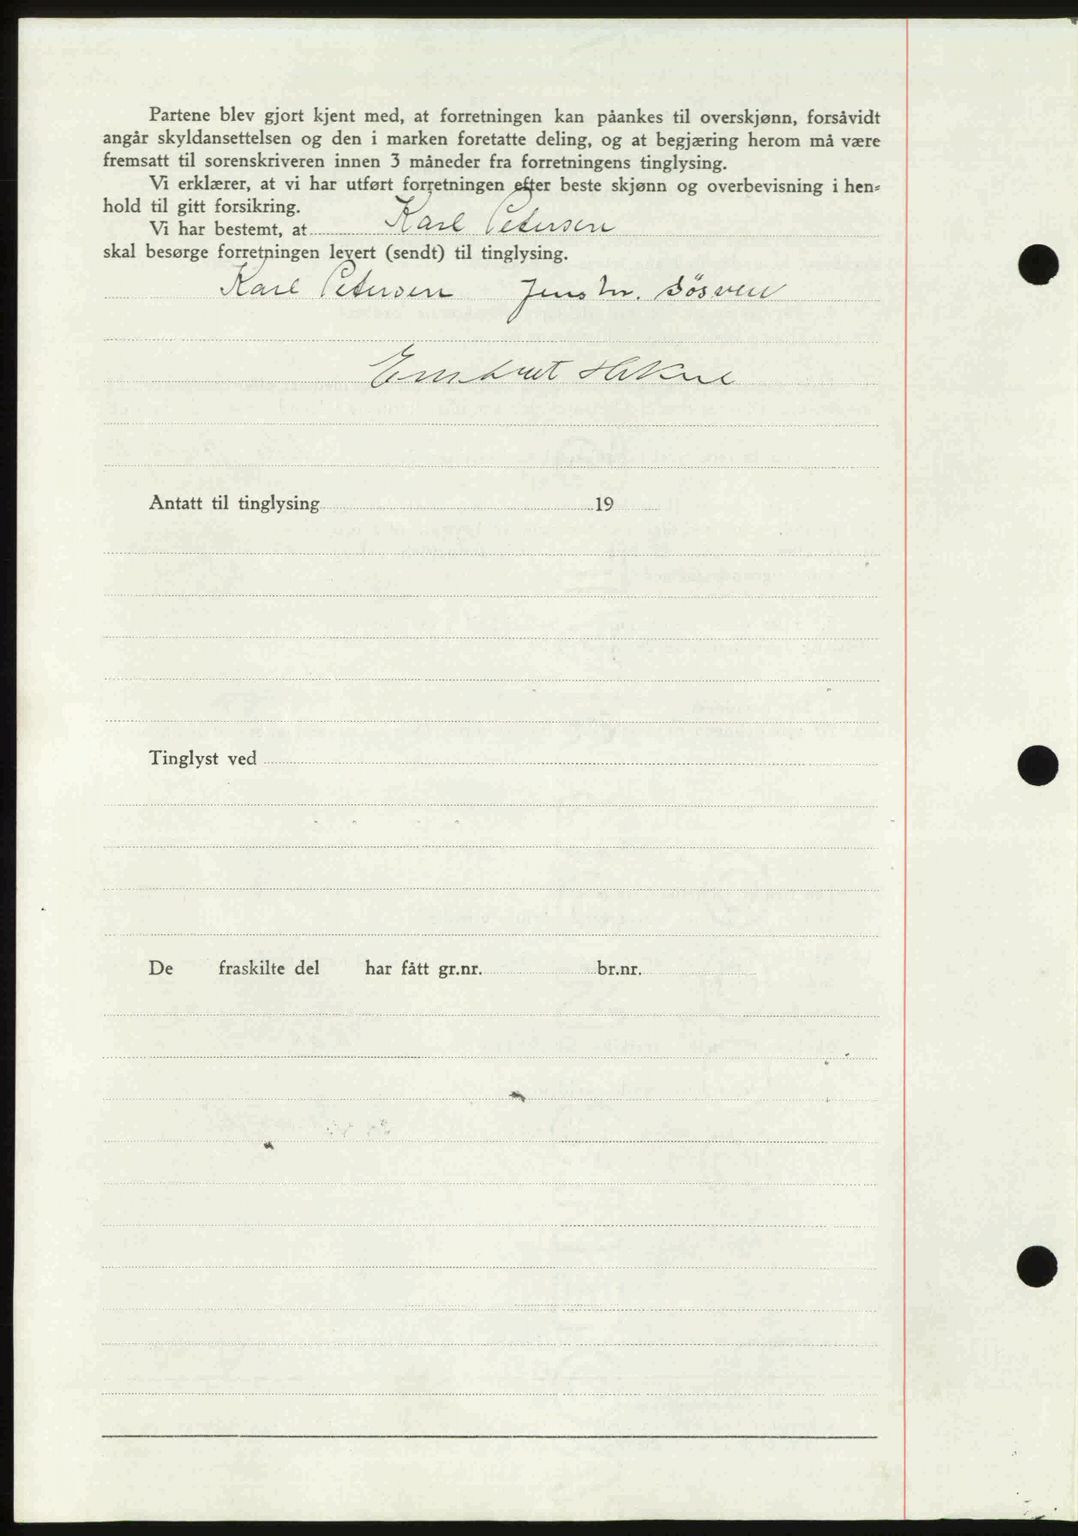 Partene blev gjort kjent med, at forretningen kan påankes til overskjønn, forsåvidt
angår skyldansettelsen og den i marken foretatte deling, og at begjæring herom må være
fremsatt til sorenskriveren innen 3 måneder fra forretningens tinglysing.
Vi erklærer, at vi har utført forretningen efter beste skjønn og overbevisning i hen=
hold til gitt forsikring.
Vi har bestemt, at Karl Petersen
skal besørge forretningen levert (sendt) til tinglysing.
Karl Petersen Jens
Antatt til tinglysing 19
Tinglyst ved
De fraskilte del har fått gr.nr. br.nr.